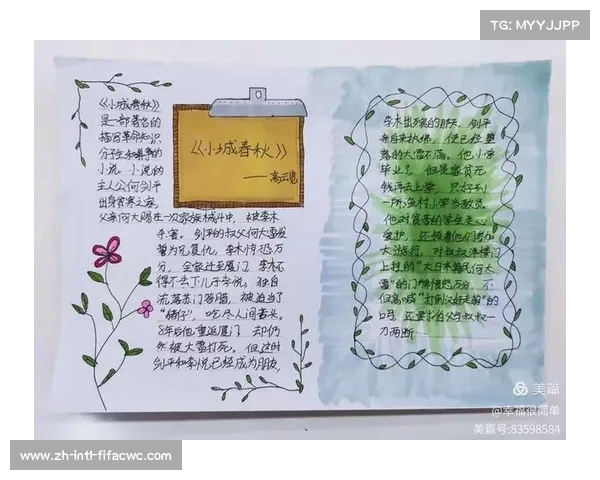 TG: MYYJJPP
《小城春秋》
是一部著名的
描写革命知识
分子生和斗争的
小说。小说的
主人公何剑平
出身贫寒之家，
父亲何大赐在一次家族械斗中，被李木
杀害。剑平的叔父何大雪发
誓为兄复仇，李木惊恐万
分，全家迁至厦门，李木不
得不丢下儿子李悦，独自
流落
被迫当了
“猪仔”，吃尽人间苦头。
8年后他重返厦门，却仍
然被大雪打死。但这时
剑平和李悦已经成为朋友
《小城春秋》
——高云览
李木出殡的那天，剑平
亲自来执绋，使已经堕
落的大雪不满。他小学
毕业了，但是家贫无
钱再去上学，只好到
一所渔村小学当教员
他对贫苦的学生关心
爱护，还领着他们参加
大游行，对叔叔洋楼门
上挂的“大日本籍民何大
雪”的门牌愤怒万分，不
但高喊“打倒汉奸走狗”的
口号，还要求伯父与叔叔一
刀两断…
美篇
@幸福很简单
美篇号:83598584
www.zh-intl-fifacwc.com